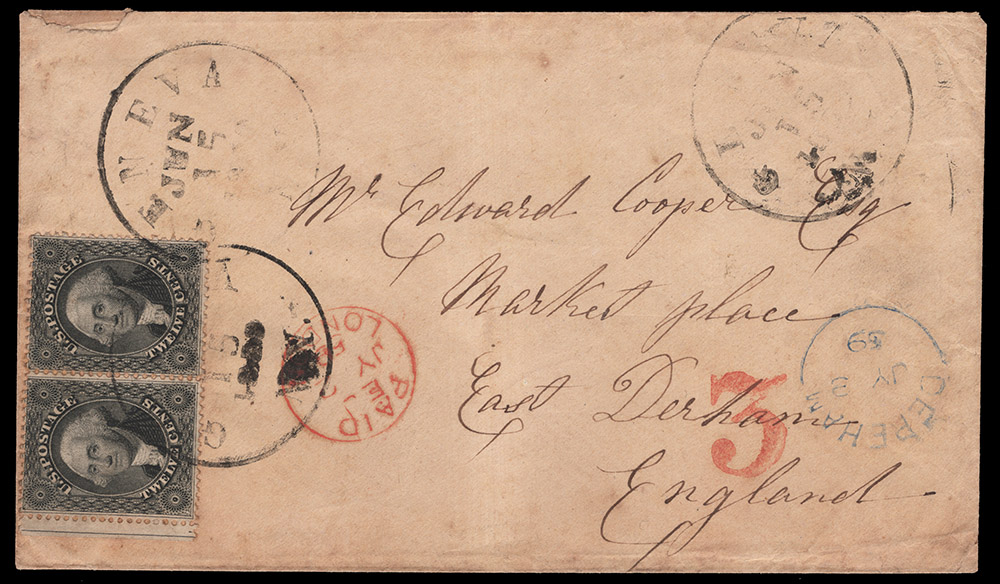 GENEVA
JUN
15
Mr Edward Cooper Esq
Market place
East Derham
England
U.S. POSTAGE
TWELVE CENTS
U.S. POSTAGE
TWELVE CENTS
PAID
LON
JY
3
DEREHAM
JY 2
59